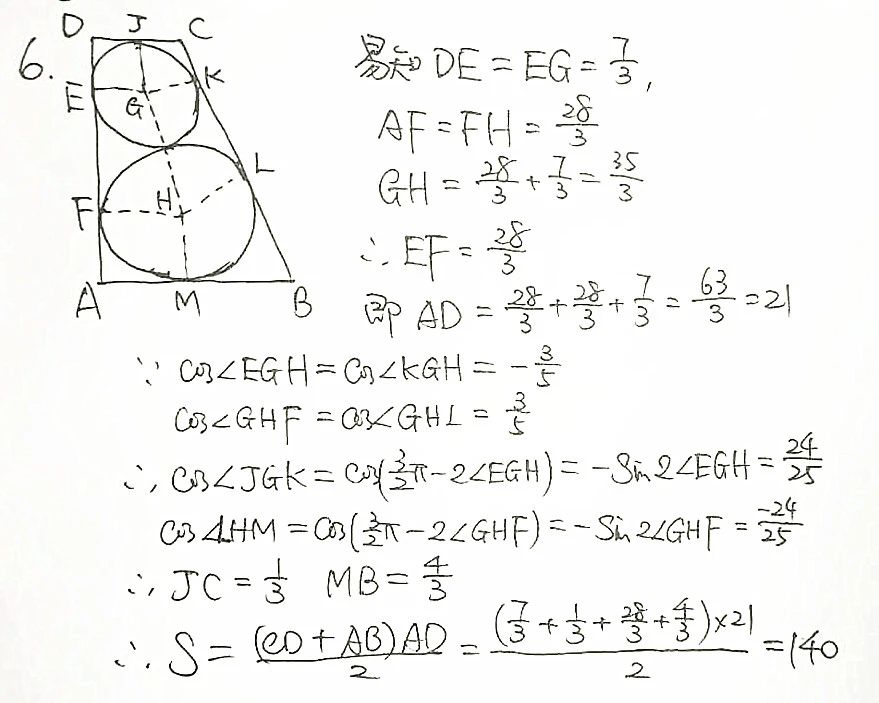 6.
D J C
E G K
F H L
A M B
易知 DE = EG = 7/3,
AF = FH = 28/3
GH = 28/3 + 7/3 = 35/3
∴ EF = 28/3
即 AD = 28/3 + 28/3 + 7/3 = 63/3 = 21
∵ cos∠EGH = cos∠KGH = -3/5
cos∠GHF = cos∠GHL = 3/5
∴ cos∠JGK = cos(3/2π - 2∠EGH) = -Sin2∠EGH = 24/25
cos∠LHM = cos(3/2π - 2∠GHF) = -Sin2∠GHF = -24/25
∴ JC = 1/3 MB = 4/3
∴ S = (CD + AB)AD/2 = (7/3 + 1/3 + 28/3 + 4/3)×21/2 = 140